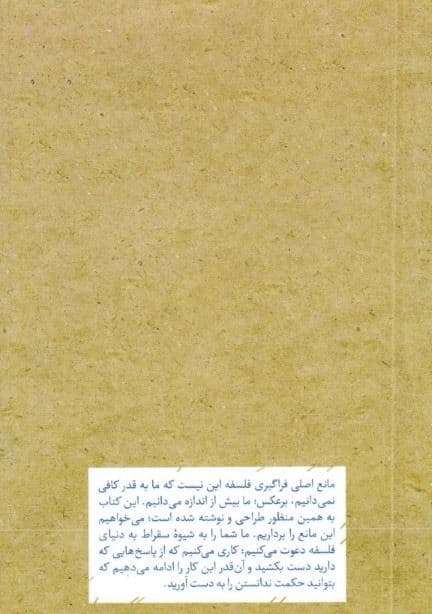 مانع اصلی فراگیری فلسفه این نیست که ما به قدر کافی
نمی‌دانیم، برعکس؛ ما بیش از اندازه می‌دانیم. این کتاب
به همین منظور طراحی و نوشته شده است؛ می‌خواهیم
این مانع را برداریم. ما شما را به شیوهٔ سقراط به دنیای
فلسفه دعوت می‌کنیم؛ کاری می‌کنیم که از پاسخ‌هایی که
دارید دست بکشید و آن‌قدر این کار را ادامه می‌دهیم که
بتوانید حکمت ندانستن را به دست آورید.